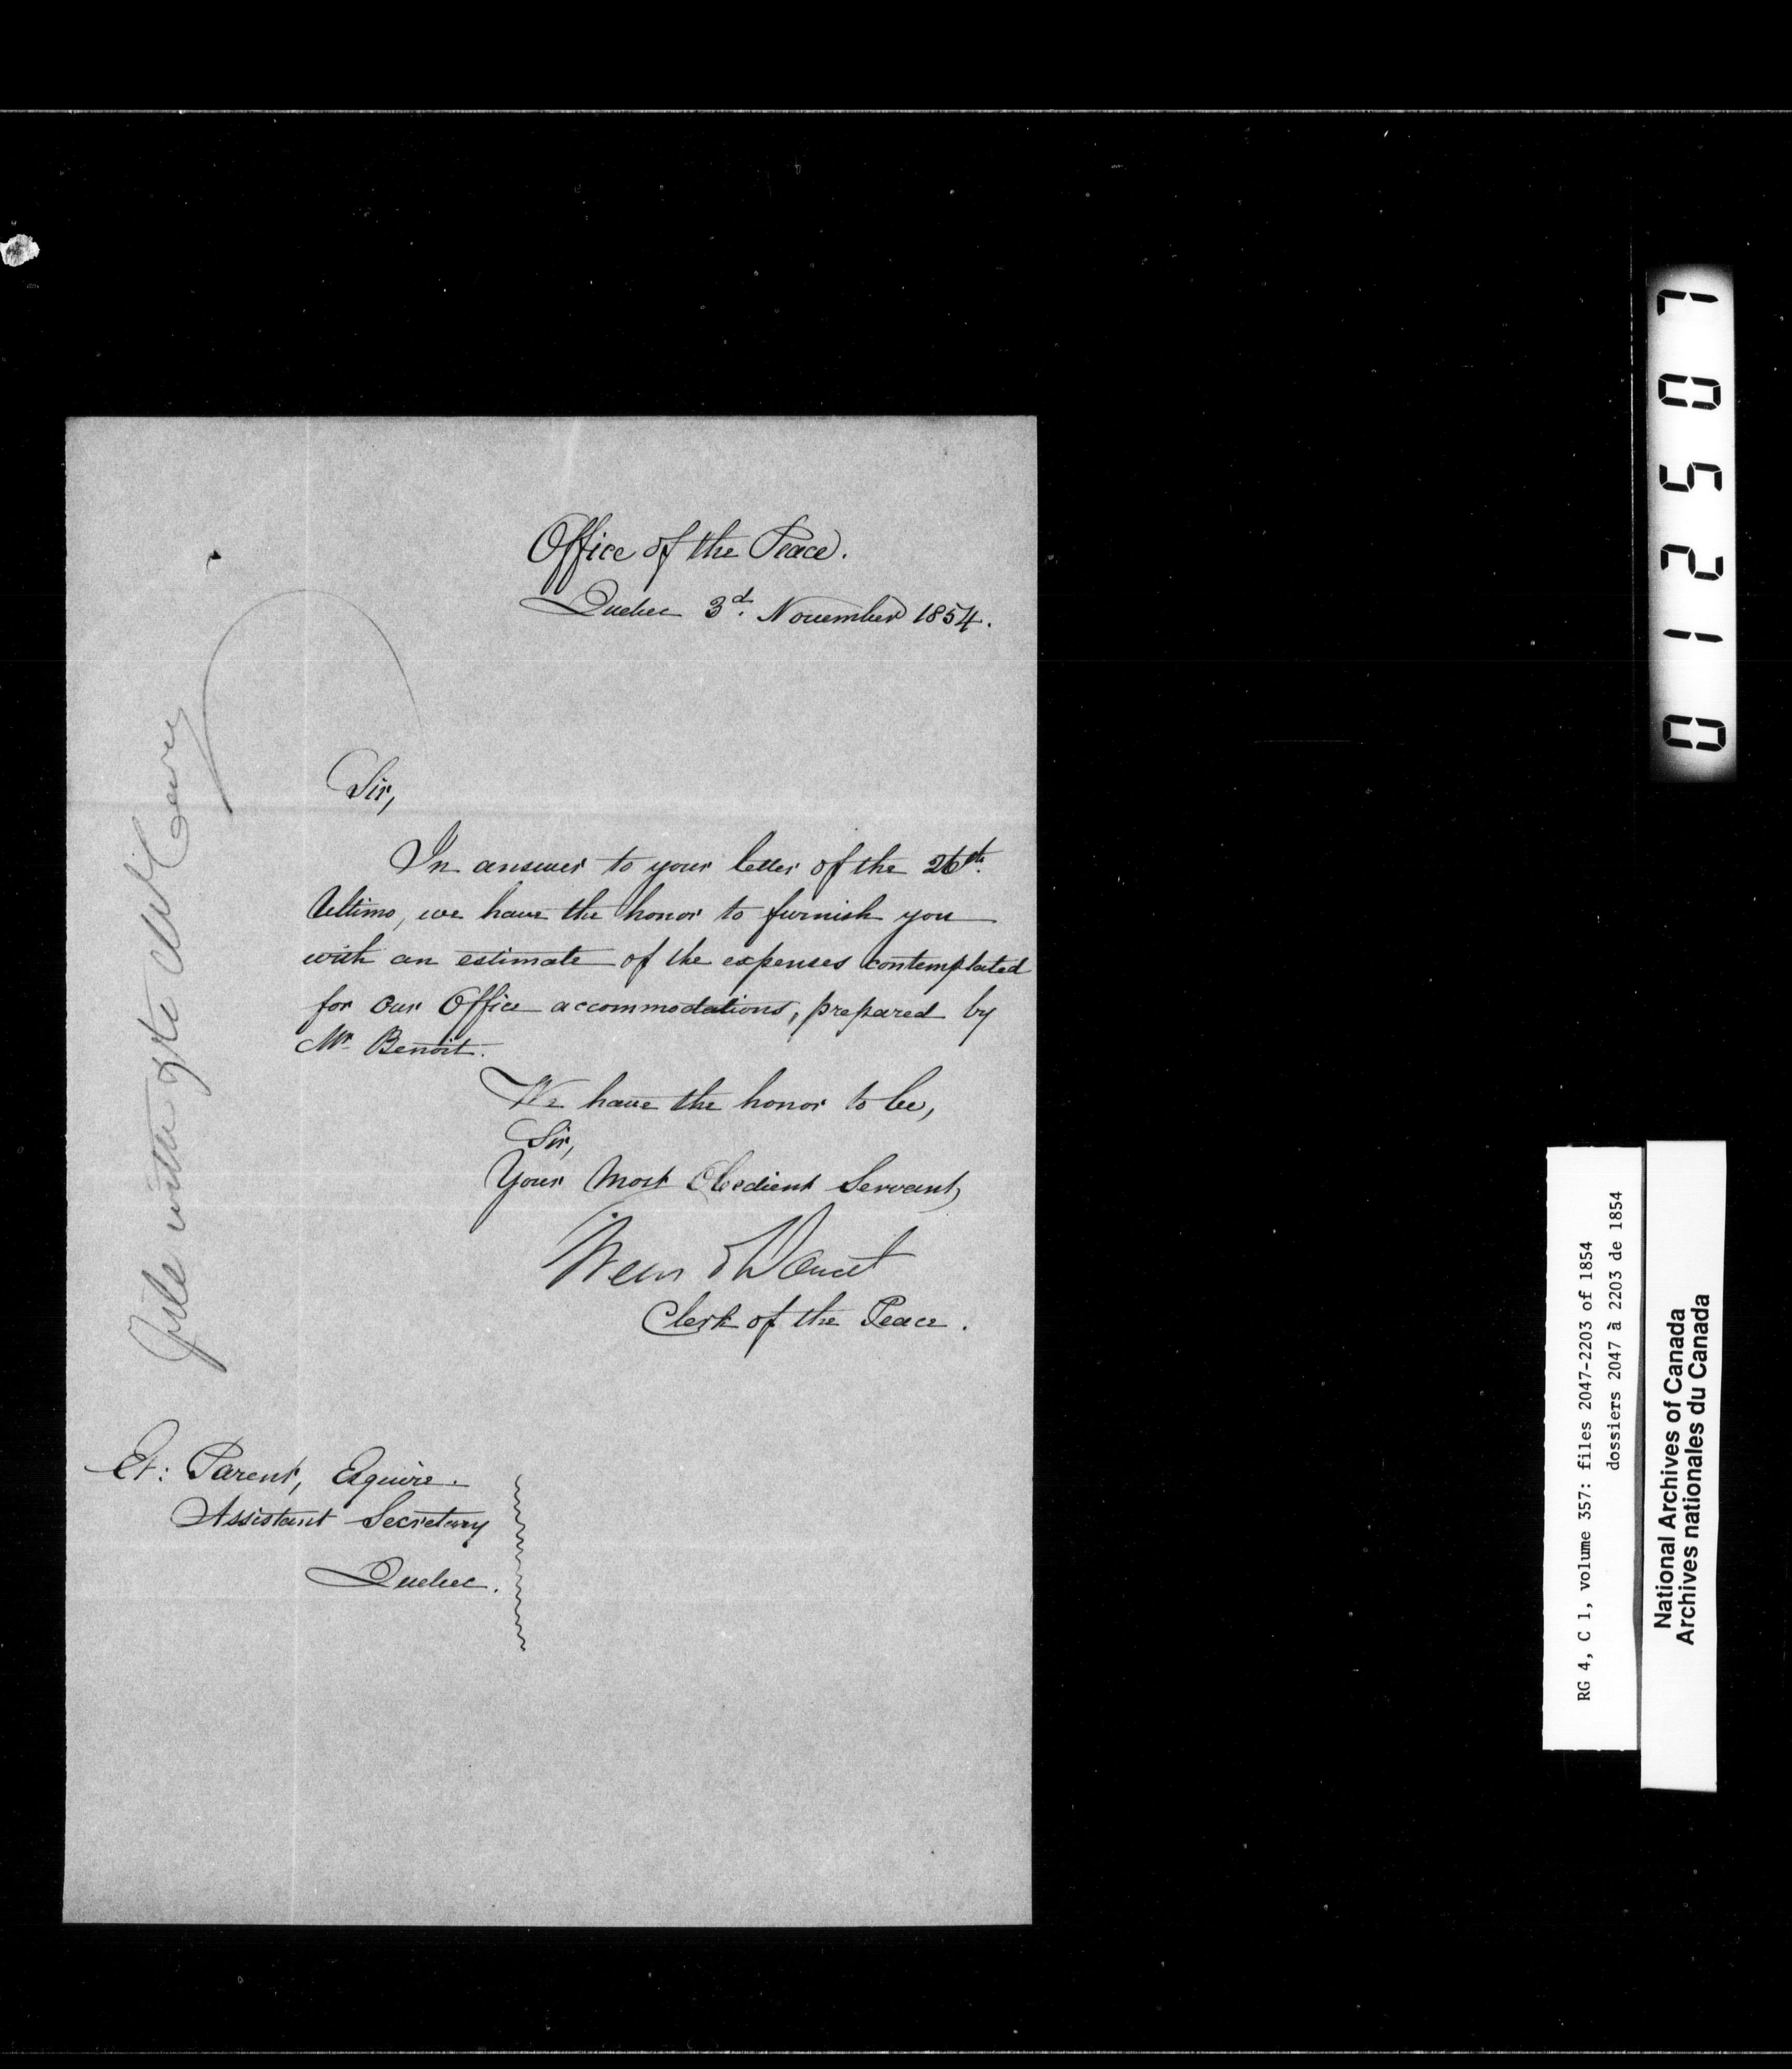 Office of the Peace.
Quebec 3d. November 1854.
Sir,
In answer to your letter of the 26th.
Ultimo, we have the honor to furnish you
with an estimate of the expenses contemplated
for our Office accommodations, prepared by
Mr. Benoit.
We have the honor to be,
Sir,
Your Most Obedient Servant,
& Doucet
Clerk of the Peace.
Et: Parent, Esquire.
Assistant Secretary
Quebec.
File with
012507
RG 4, C 1, volume 357: files 2047-2203 of 1854
dossiers 2047 à 2203 de 1854
National Archives of Canada
Archives nationales du Canada